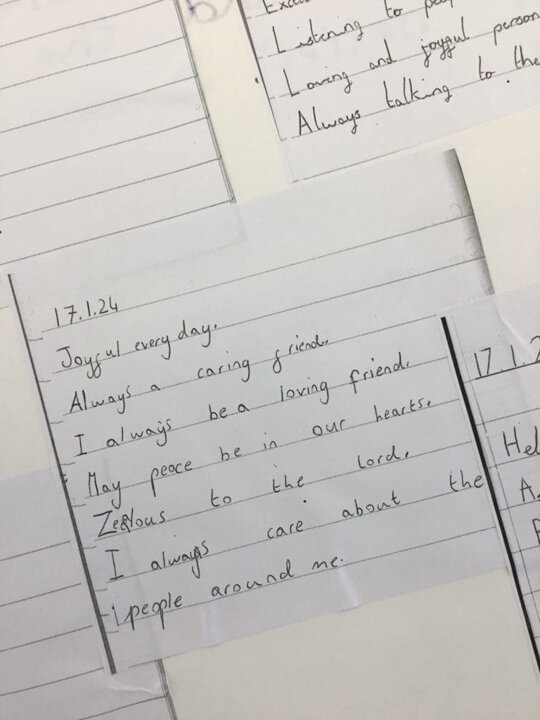 Listening to
Loving and joyful person
Always talking to the
17.1.24
Joyful every day.
Always a caring friend.
I always be a loving friend.
May peace be in our hearts.
Zealous to the Lord.
I always care about the
people around me.
17.1.2
Hel